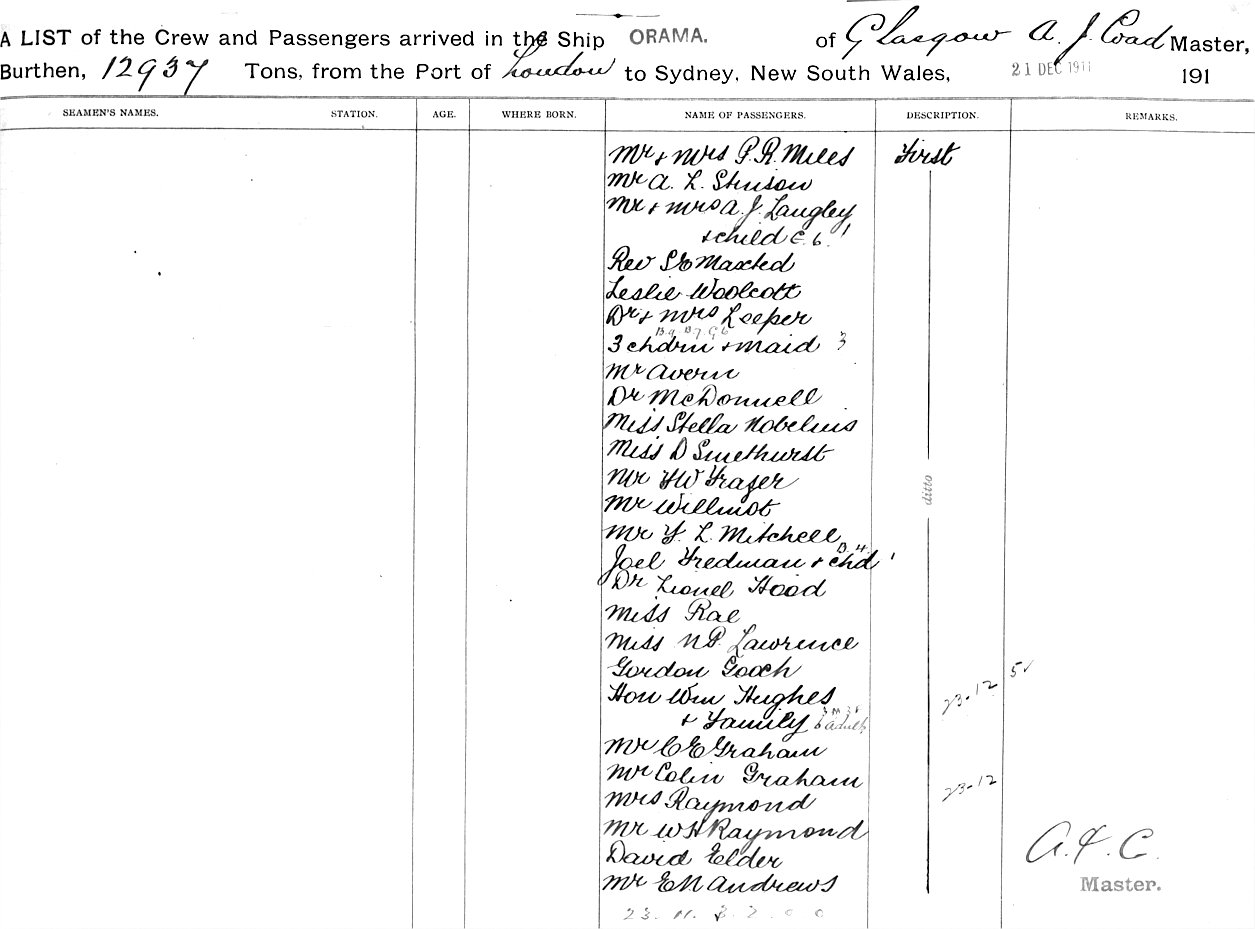 A LIST of the Crew and Passengers arrived in the Ship ORAMA. of Glasgow A. J. Coad Master,
Burthen, 12937 Tons, from the Port of London to Sydney, New South Wales, 21 DEC 1911 191
SEAMEN'S NAMES. STATION. AGE. WHERE BORN. NAME OF PASSENGERS. DESCRIPTION. REMARKS.
Mr + Mrs P. R. Miles First
Mr A. L. Stinson
Mr + Mrs A. J. Langley
+ child G. 6. 1
Rev S E Maxted
Leslie Woolcott
Dr + Mrs Leeper
B9 B7 G6
3 chdrn + maid 3
Mr Avern
Dr McDonnell
Miss Stella Nobelius
Miss D Smethurst
Mr F W Fraser
Mr Willmot
ditto
Mr F. L. Mitchell
B. 4.
Joel Fredman + chd 1
Dr Lionel Hood
Miss Rae
Miss N P. Lawrence
Gordon Gooch 5
Hon Wm Hughes 23-12
+ Family 6 adults
Mr C E Graham
Mr Colin Graham 23-12
Mrs Raymond
Mr W H Raymond
David Elder A. J. C.
Mr E N Andrews Master.
23. 11. 8. 2. 0 0